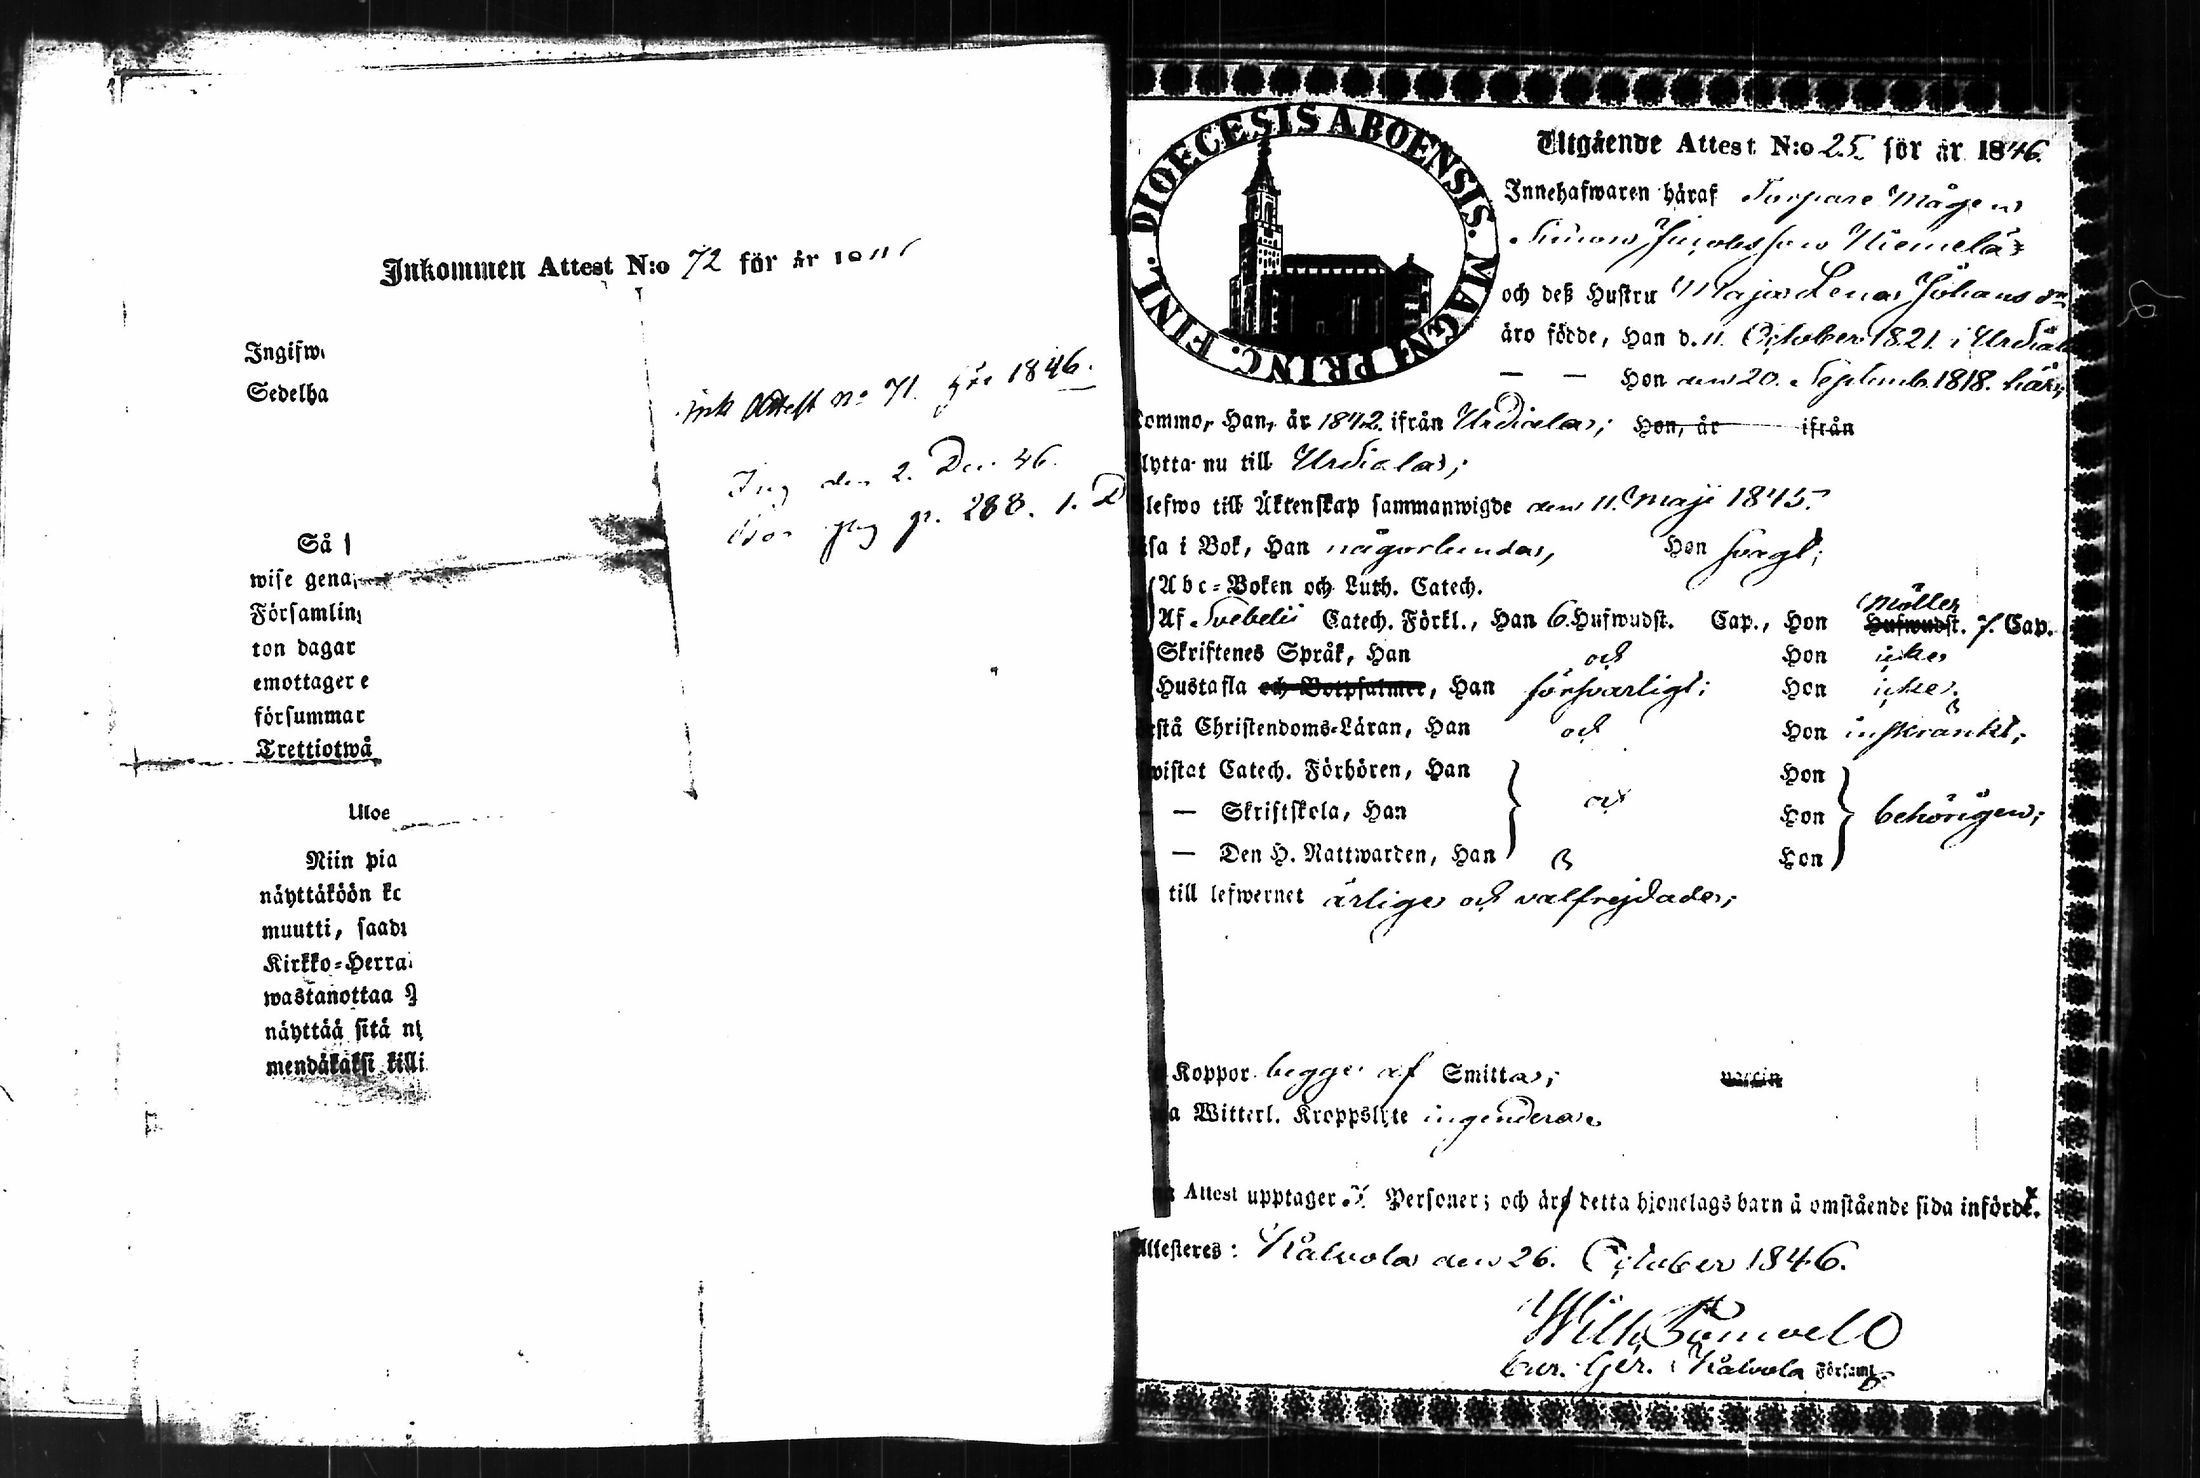 Inkommen Attest N:o 72 för år
Ingifw
Sedelha
Ink Attest No 71. för 1846.
Ing den 2. Dec. 46.
p. 288. 1. D
Så
wise gena
Församlin
ton dagar
emottager e
försummar
Trettiotwå
Uloe
Niin pia
näyttäköön ko
muutti, saadu
Kirkko-Herra
wastanottaa
näyttää sitä ny
mendäkaksi killi
DIOECESIS ABOENSIS. MAGNI PRINC. FINL.
Utgående Attest N:o 25. för år 1846.
Innehafwaren häraf Torpare Mågen
Simon Jacobsson Niemelä
och deß Hustru Maja Lena Johans dr
äro födde, Han d. 11. October 1821. i Urdiala
— — Hon den 20. Septemb. 1818. här;
kommo, Han, år 1842. ifrån Urdiala; Hon, år ifrån
flytta nu till Urdiala;
blefwo till Äktenskap sammanwigde den 11. Maji 1845.
läsa i Bok, Han någorlunda, Hon svagt;
Abc-Boken och Luth. Catech.
Af Svebelii Catech. Förkl., Han 6. Hufwudst. Cap., Hon Möller Hufwudst. 7. Cap.
Skriftenes Språk, Han och Hon icke
Hustafla och Botpsalmer, Han försvarligt; Hon icke.
förstå Christendoms-Läran, Han och Hon inskränkt;
bewistat Catech. Förhören, Han Hon
— Skriftskola, Han och Hon behörigen;
— Den H. Nattwarden, Han Hon
till lefwernet ärlige och välfrejdade;
Koppor begge af Smitta;
a Witterl. Kroppslyte ingendera
Attest upptager 2. Personer; och äro detta hjonelags barn å omstående sida införde.
Attesteres: Kalvola den 26. October 1846.
Wilh.
Cur. Ger. i Kalvola Församl.